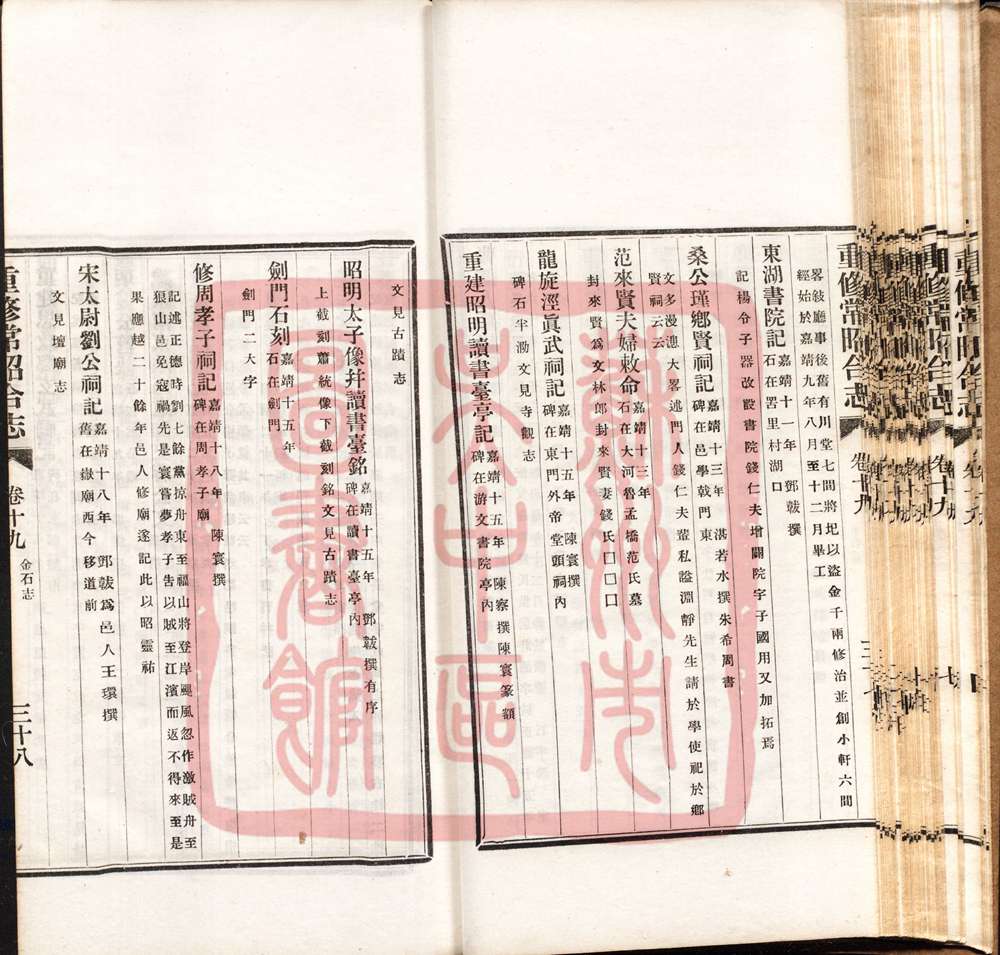 重修常昭合志
卷十九
畧敍廳事後舊有川堂七間將圮以盜金千兩修治並創小軒六間
經始於嘉靖九年八月至十二月畢工
東湖書院記 嘉靖十一年 鄧韍撰
石在罟里村湖口
記楊令子器改設書院錢仁夫增闢院宇子國用又加拓焉
桑公瑾鄉賢祠記 嘉靖十三年 湛若水撰朱希周書
碑在邑學戟門東
文多漫漶大畧述門人錢仁夫輩私謚淵靜先生請於學使祀於鄉
賢祠云云
范來賢夫婦敕命 嘉靖十三年
石在大河魯孟橋范氏墓
封來賢爲文林郎封來賢妻錢氏囗囗囗
龍旋涇眞武祠記 嘉靖十五年 陳寰撰
碑在東門外帝堂頭祠內
碑石半泐文見寺觀志
重建昭明讀書臺亭記 嘉靖十五年 陳察撰陳寰篆額
碑在游文書院亭內
文見古蹟志
昭明太子像幷讀書臺銘 嘉靖十五年 鄧韍撰有序
碑在讀書臺亭內
上截刻蕭統像下截刻銘文見古蹟志
劍門石刻 嘉靖十五年
石在劍門
劍門二大字
修周孝子祠記 嘉靖十八年 陳寰撰
碑在周孝子廟
記述正德時劉七餘黨掠舟東至福山將登岸颶風忽作漩賊舟至
狼山邑免寇禍先是寰嘗夢孝子吿以賊至江濱而返不得來至是
果應越二十餘年邑人修廟遂記此以昭靈祐
宋太尉劉公祠記 嘉靖十八年 鄧韍爲邑人王環撰
舊在嶽廟西今移道前
文見壇廟志
重修常昭合志
卷十九 金石志
三十八